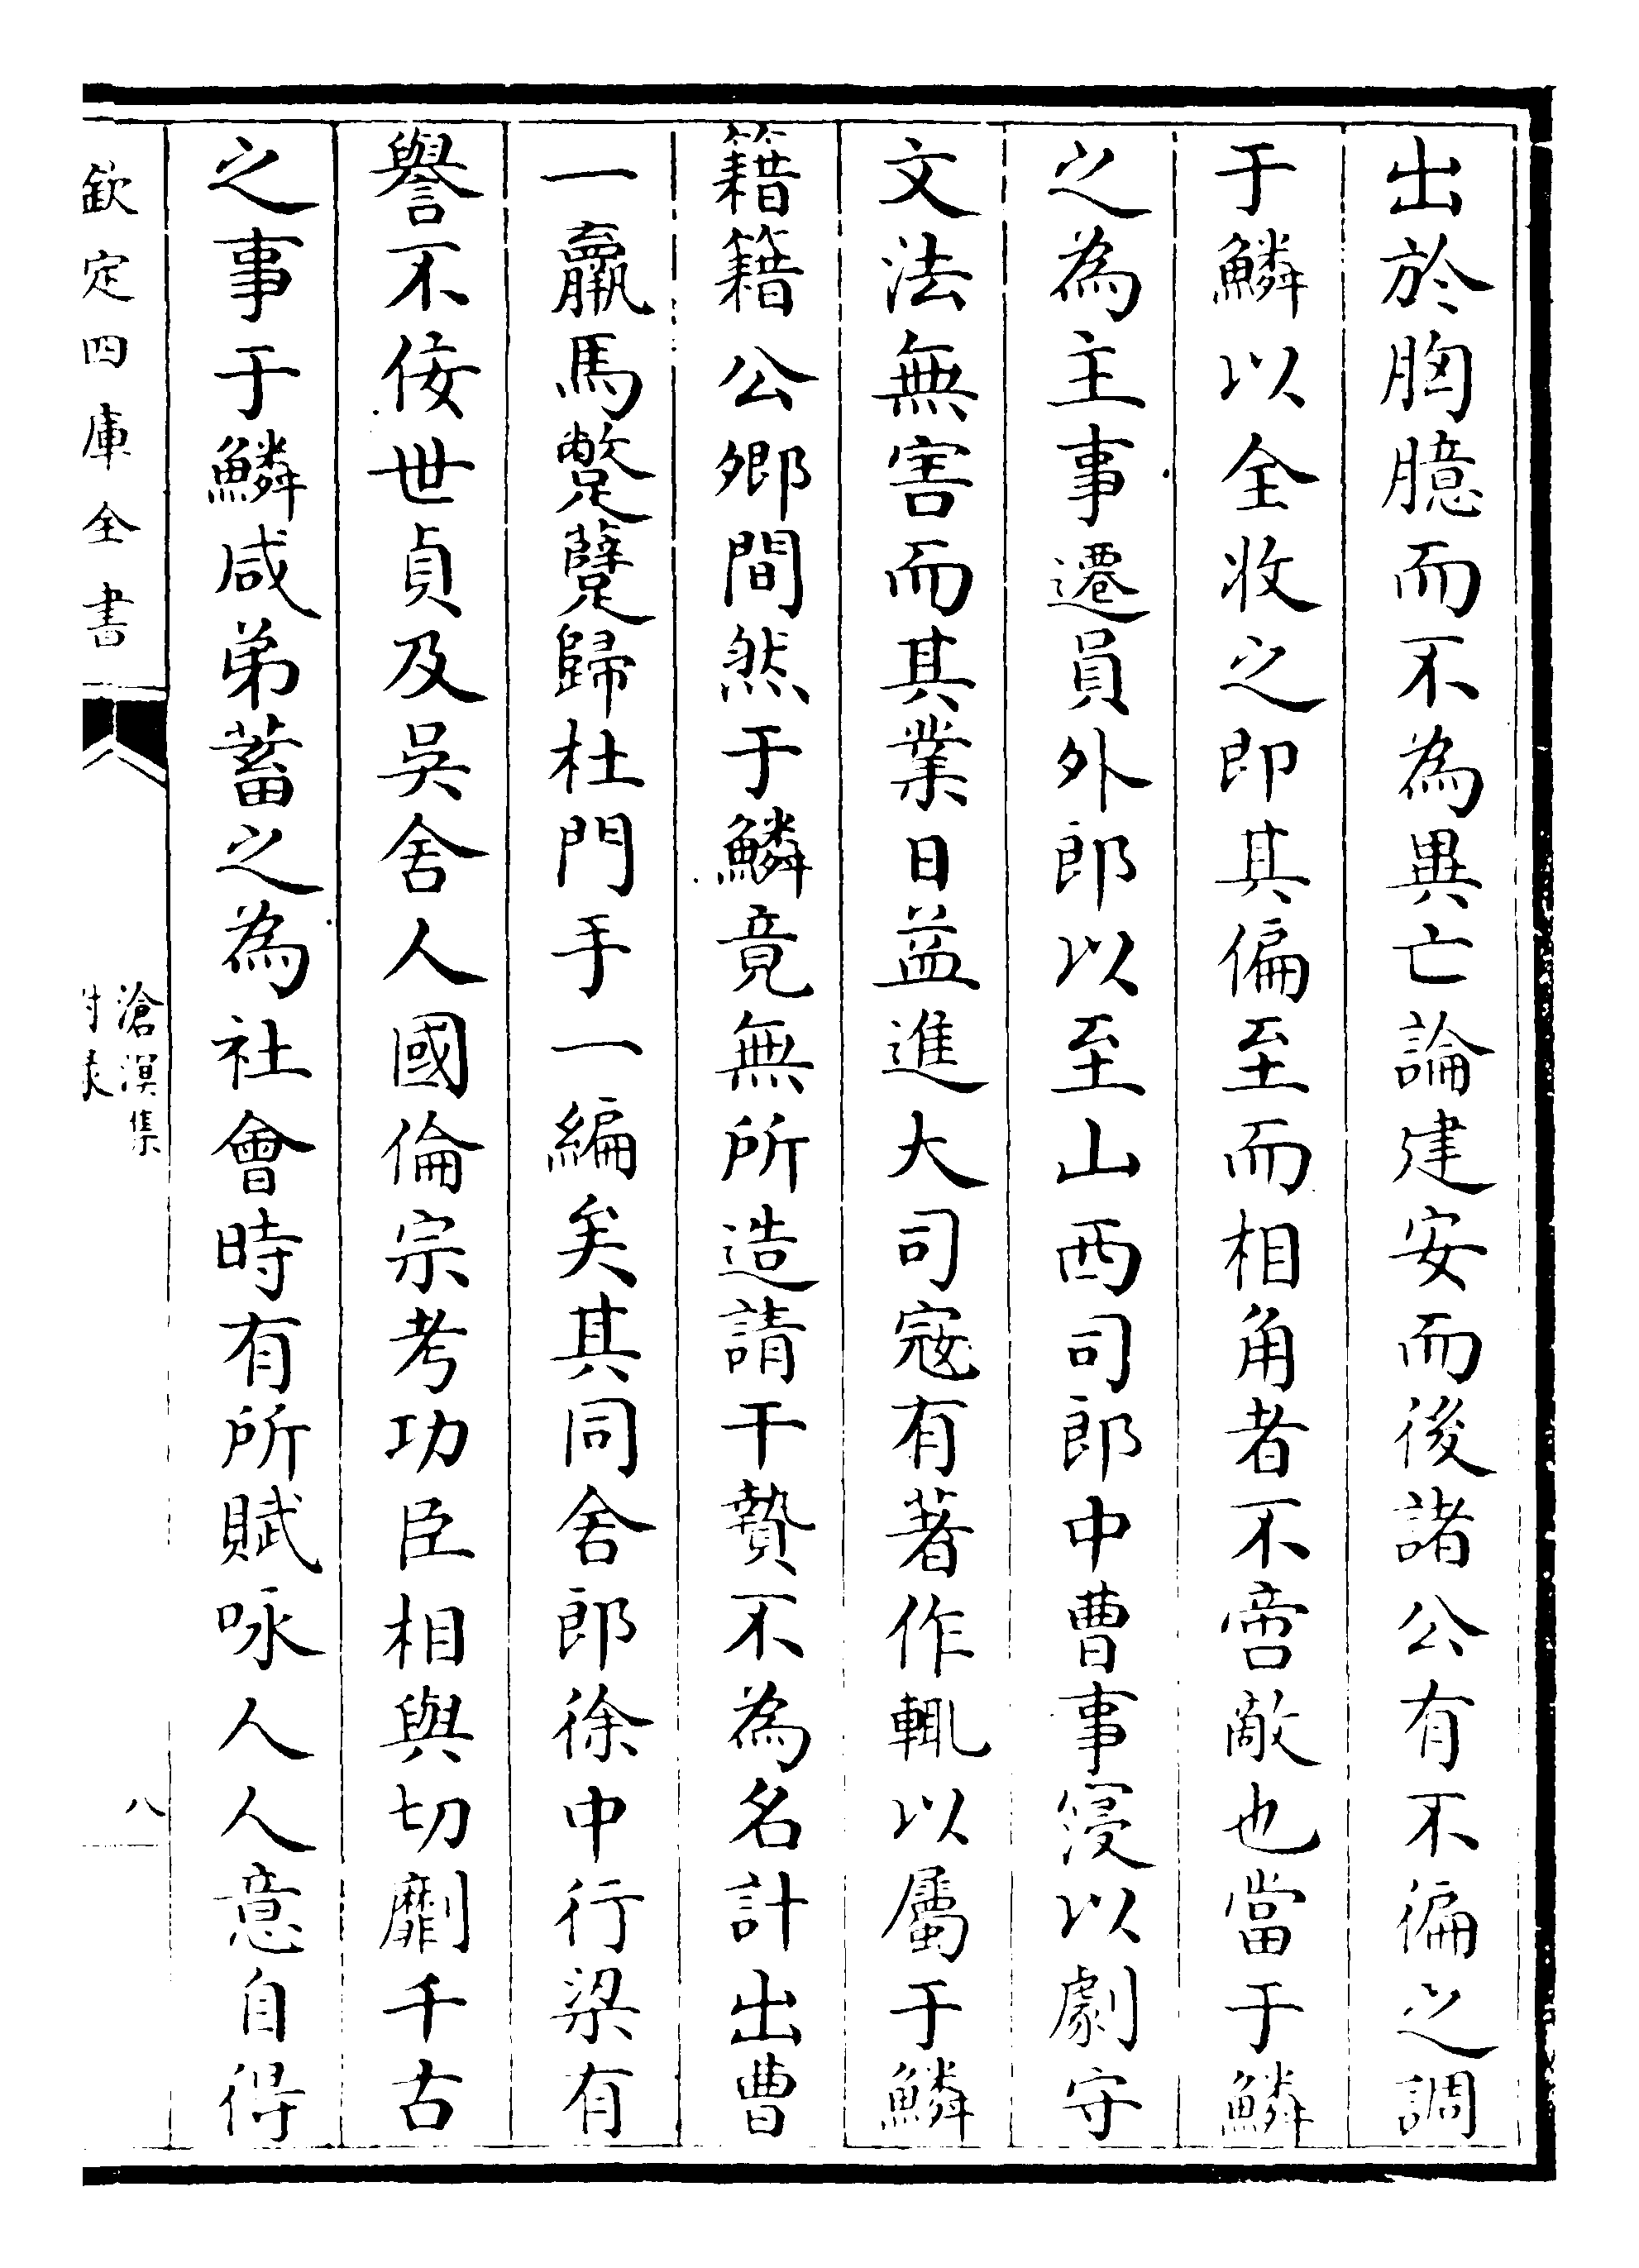 出於胸臆而不為異亡論建安而後諸公有不徧之調
于鱗以全收之即其偏至而相角者不啻敵也當于鱗
之為主事遷員外郎以至山西司郎中曹事寖以劇守
文法無害而其業日益進大司寇有著作輒以屬于鱗
籍籍公卿間然于鱗竟無所造請干贄不為名計出曹
一羸馬蹩躠歸杜門手一編矣其同舍郎徐中行梁有
譽不佞世貞及吳舍人國倫宗考功臣相與切劘千古
之事于鱗咸弟蓄之為社會時有所賦咏人人意自得
欽定四庫全書
滄溟集
附錄
八